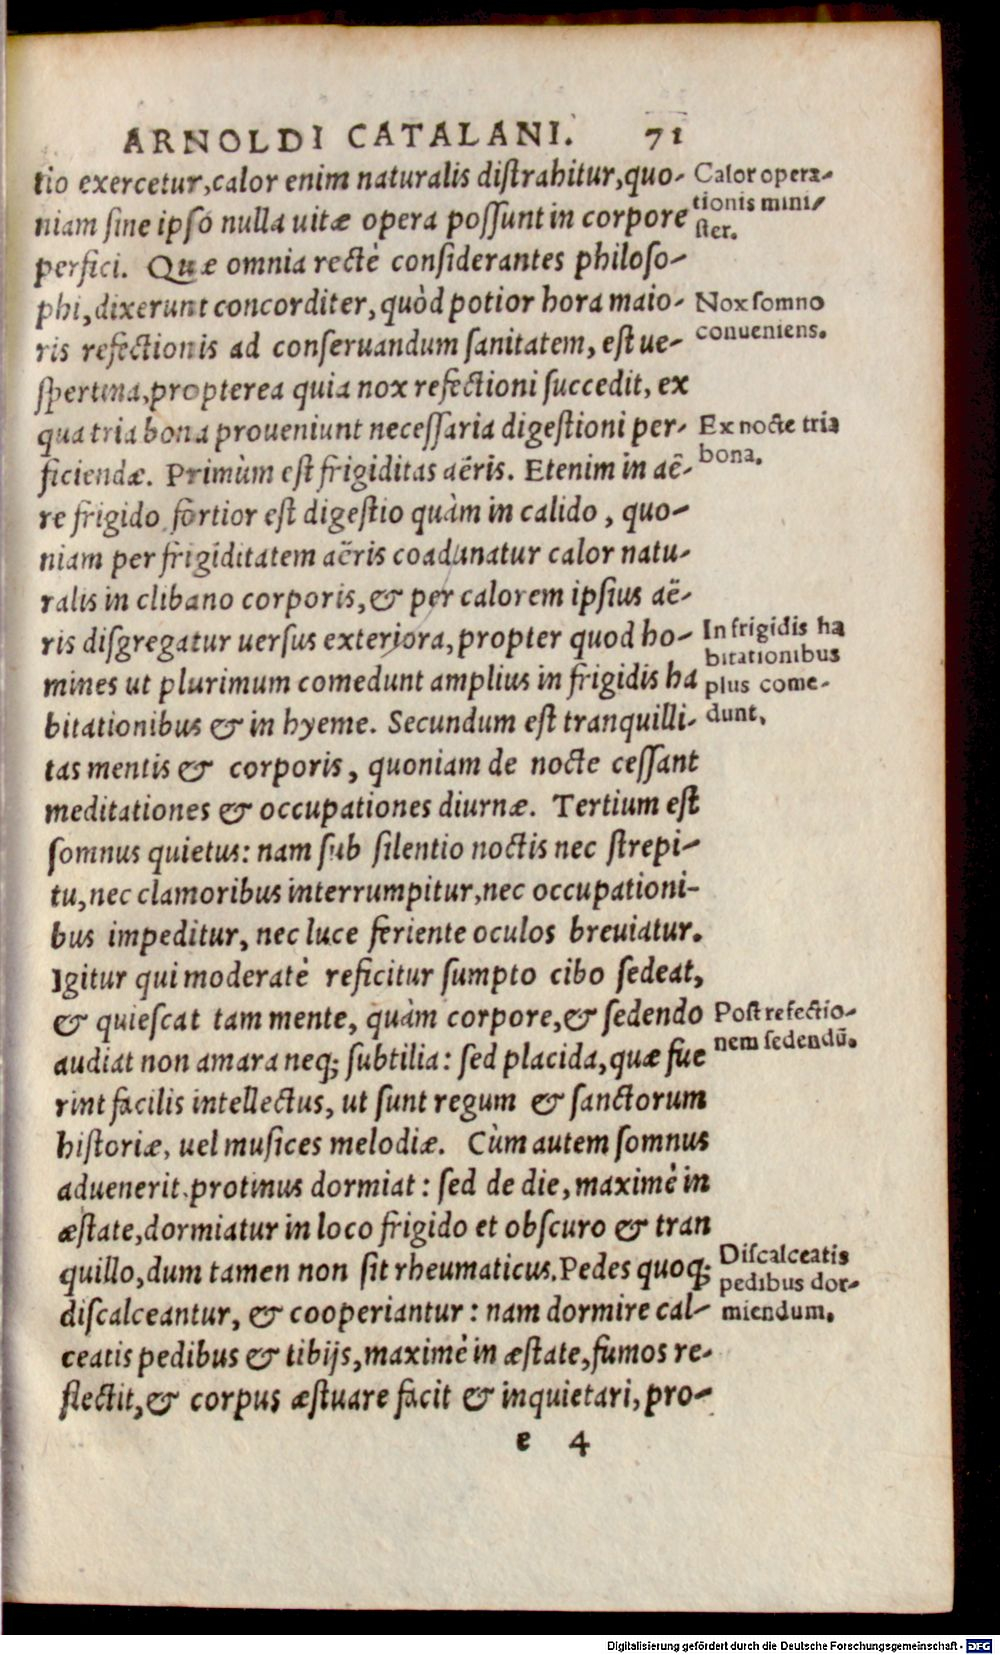 ARNOLDI CATALANI. 71
tio exercetur,calor enim naturalis distrahitur,quo-
niam sine ipso nulla uitæ opera possunt in corpore
perfici. Quæ omnia rectè considerantes philoso-
phi,dixerunt concorditer,quòd potior hora maio-
ris refectionis ad conseruandum sanitatem, est ue-
spertina,propterea quia nox refectioni succedit, ex
qua tria bona proueniunt necessaria digestioni per-
ficiendæ. Primùm est frigiditas aëris. Etenim in aë-
re frigido fortior est digestio quàm in calido, quo-
niam per frigiditatem aëris coadunatur calor natu-
ralis in clibano corporis,& per calorem ipsius aë-
ris disgregatur uersus exteriora,propter quod ho-
mines ut plurimum comedunt amplius in frigidis ha
bitationibus & in hyeme. Secundum est tranquilli-
tas mentis & corporis, quoniam de nocte cessant
meditationes & occupationes diurnæ. Tertium est
somnus quietus: nam sub silentio noctis nec strepi-
tu,nec clamoribus interrumpitur,nec occupationi-
bus impeditur, nec luce feriente oculos breuiatur.
Igitur qui moderatè reficitur sumpto cibo sedeat,
& quiescat tam mente, quàm corpore,& sedendo
audiat non amara neq; subtilia: sed placida,quæ fue
rint facilis intellectus, ut sunt regum & sanctorum
historiæ, uel musices melodiæ. Cùm autem somnus
aduenerit,protinus dormiat: sed de die, maximè in
æstate,dormiatur in loco frigido et obscuro & tran
quillo,dum tamen non sit rheumaticus.Pedes quoq;
discalceantur, & cooperiantur: nam dormire cal-
ceatis pedibus & tibijs,maximè in æstate,fumos re-
flectit,& corpus æstuare facit & inquietari, pro-
e 4
Calor opera-
tionis mini-
ster.
Nox somno
conueniens.
Ex nocte tria
bona.
In frigidis ha
bitationibus
plus come-
dunt.
Post refectio-
nem sedendũ.
Discalceatis
pedibus dor-
miendum.
Digitalisierung gefördert durch die Deutsche Forschungsgemeinschaft - DFG